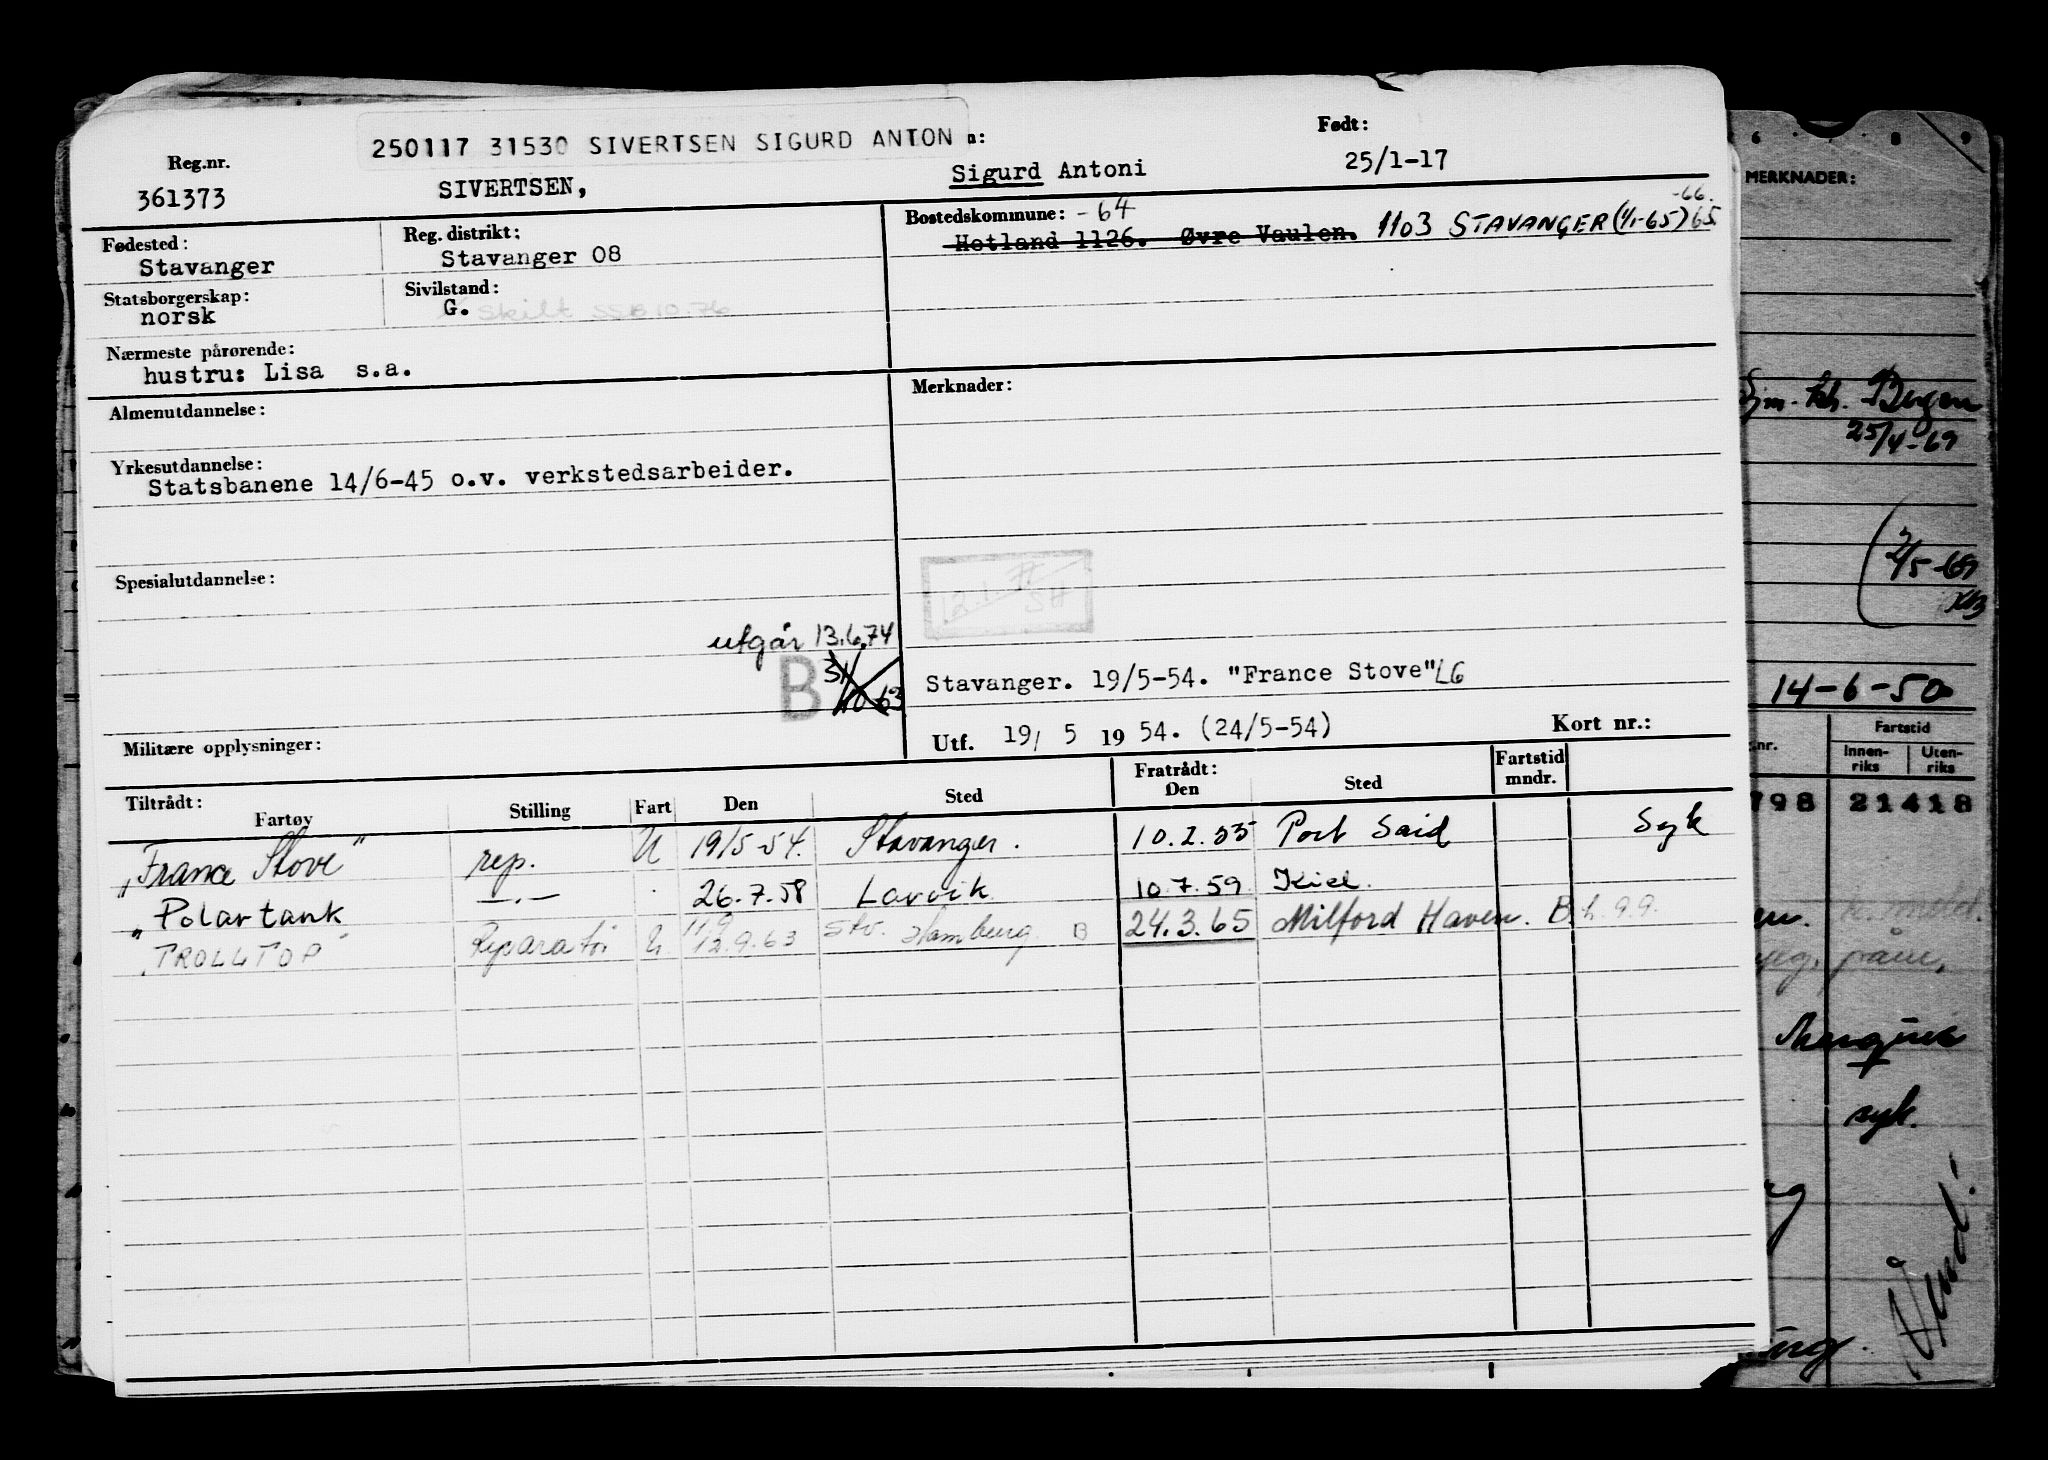 250117 31530 SIVERTSEN SIGURD ANTON n:
Født:
Reg.nr.
361373 SIVERTSEN, Sigurd Antoni 25/1-17
Fødested:
Stavanger
Reg. distrikt:
Stavanger 08
Bostedskommune: -64 -66.
Hetland 1126. Øvre Vaulen. 1103 STAVANGER (1/1-65) 65
Statsborgerskap:
norsk
Sivilstand:
G. skilt SSB 10.76
Nærmeste pårørende:
hustru: Lisa s.a.
Almenutdannelse:
Merknader:
Yrkesutdannelse:
Statsbanene 14/6-45 o.v. verkstedsarbeider.
Spesialutdannelse:
utgår 13.6.74
B
Stavanger. 19/5-54. "France Stove" LG
Militære opplysninger:
Utf. 19/ 5 19 54. (24/5-54) Kort nr.:
Tiltrådt: Fratrådt:
Fartøy Stilling Fart Den Sted Den Sted Fartstid mndr.
"France Stove" rep. U 19/5-54. Stavanger. 10.2.55 Port Said Syk
"Polartank —.— 26.7.58 Larvik 10.7.59 Kiel.
"TROLLTOP" Reparatør U 11.9
12.9.63 Stv. Hamburg B 24.3.65 Milford Haven. B.h. 9.9.
6 8 9
MERKNADER:
25/4-69
2/5-69
14-6-50
Fartstid
.nr. Innen-riks Uten-riks
798 21418
syk.